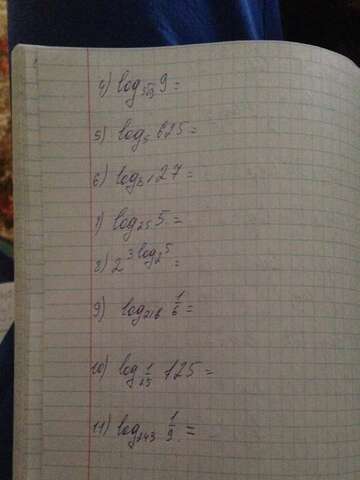 4) log_{3√3} 9 =
5) log_5 625 =
6) log_{81} 27 =
7) log_{25} 5 =
8) 2^{3 log_2 5} =
9) log_{216} 1/6 =
10) log_{1/25} 125 =
11) log_{243} 1/9 =